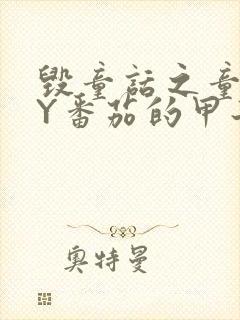 毁童话之童
Y番茄的甲
奥特曼